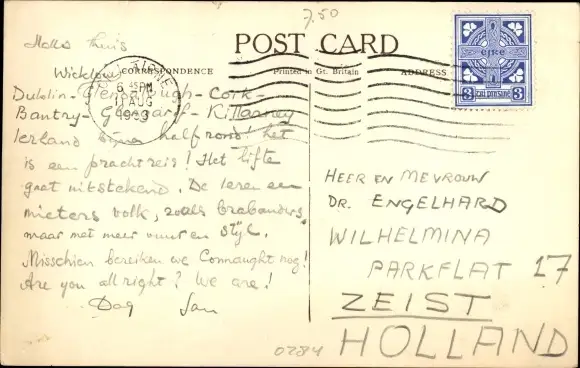 7.50
Hallo thuis
POST CARD
CORRESPONDENCE
Printed in Gt. Britain
ADDRESS
éire
3 3
6 45PM
11 AUG
Wicklow
Dublin - Glendalough - Cork -
Bantry - Glengariff - Killarney
Ierland bijna half rond! het
is een prachtreis! Het liften
gaat uitstekend. De Ieren een
mieters volk, zoals brabanders,
maar met meer vuur en stijl.
Misschien bereiken we Connaught nog!
Are you all right? We are!
Dag Jan
HEER EN MEVROUW
DR. ENGELHARD
WILHELMINA
PARKFLAT 17
ZEIST
HOLLAND
0284